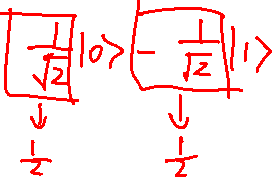 1/√2 |0> - 1/√2 |1>
↓ ↓
1/2 1/2